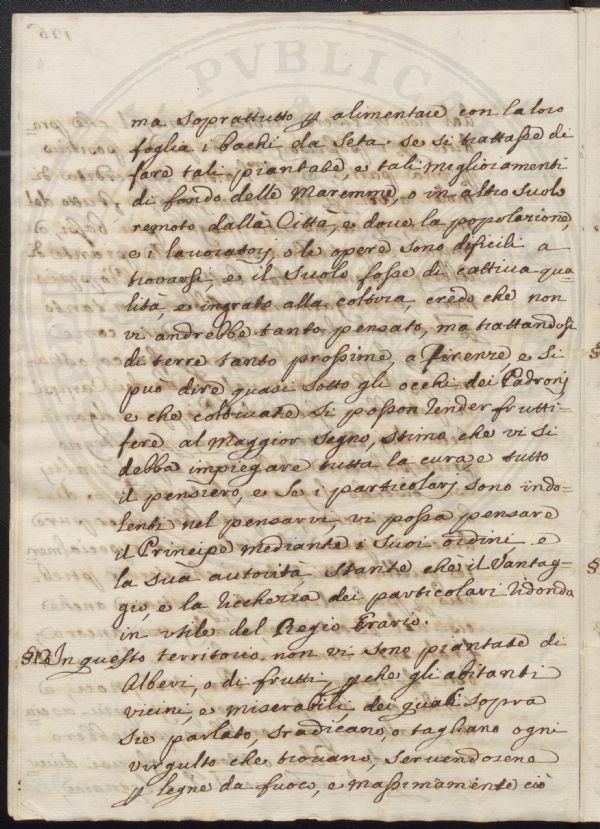 ma soprattutto p alimentare con la loro
foglia i bachi da Seta. se si trattasse di
fare tali piantate, e tali miglioramenti
di fondo delle Maremme, o in altro suolo
remoto dalla Città, e dove la popolazione,
e i lavoratorj, o le opere sono dificili a
trovarsi, e il suolo fosse di cattiva qua=
lità, e ingrato alla coltura, credo che non
vi andrebbe tanto pensato, ma trattandosi
di terre tanto prossime a Firenze e si
può dire quasi sotto gli occhi dei Padronj
e che coltivate si posson render frutti=
fere al maggior segno, stimo che vi si
debba impiegare tutta la cura, e tutto
il pensiero, e se i particolarj sono indo=
lenti nel pensarvi vi possa pensare
il Principe mediante i suoi ordini e
la sua autorità stante che il Vantag=
gio, e la ricchezza dei particolari ridonda
in utile del Regio Erario.
§12 In questo territorio non vi sono piantate di
Alberi, o di frutti, p che gli abitanti
vicini, e miserabili, dei quali sopra
si è parlato, sradicano, o tagliano ogni
virgulto che trovano, servendosene
p legne da fuoco, e massimamente ciò
PVBLICA